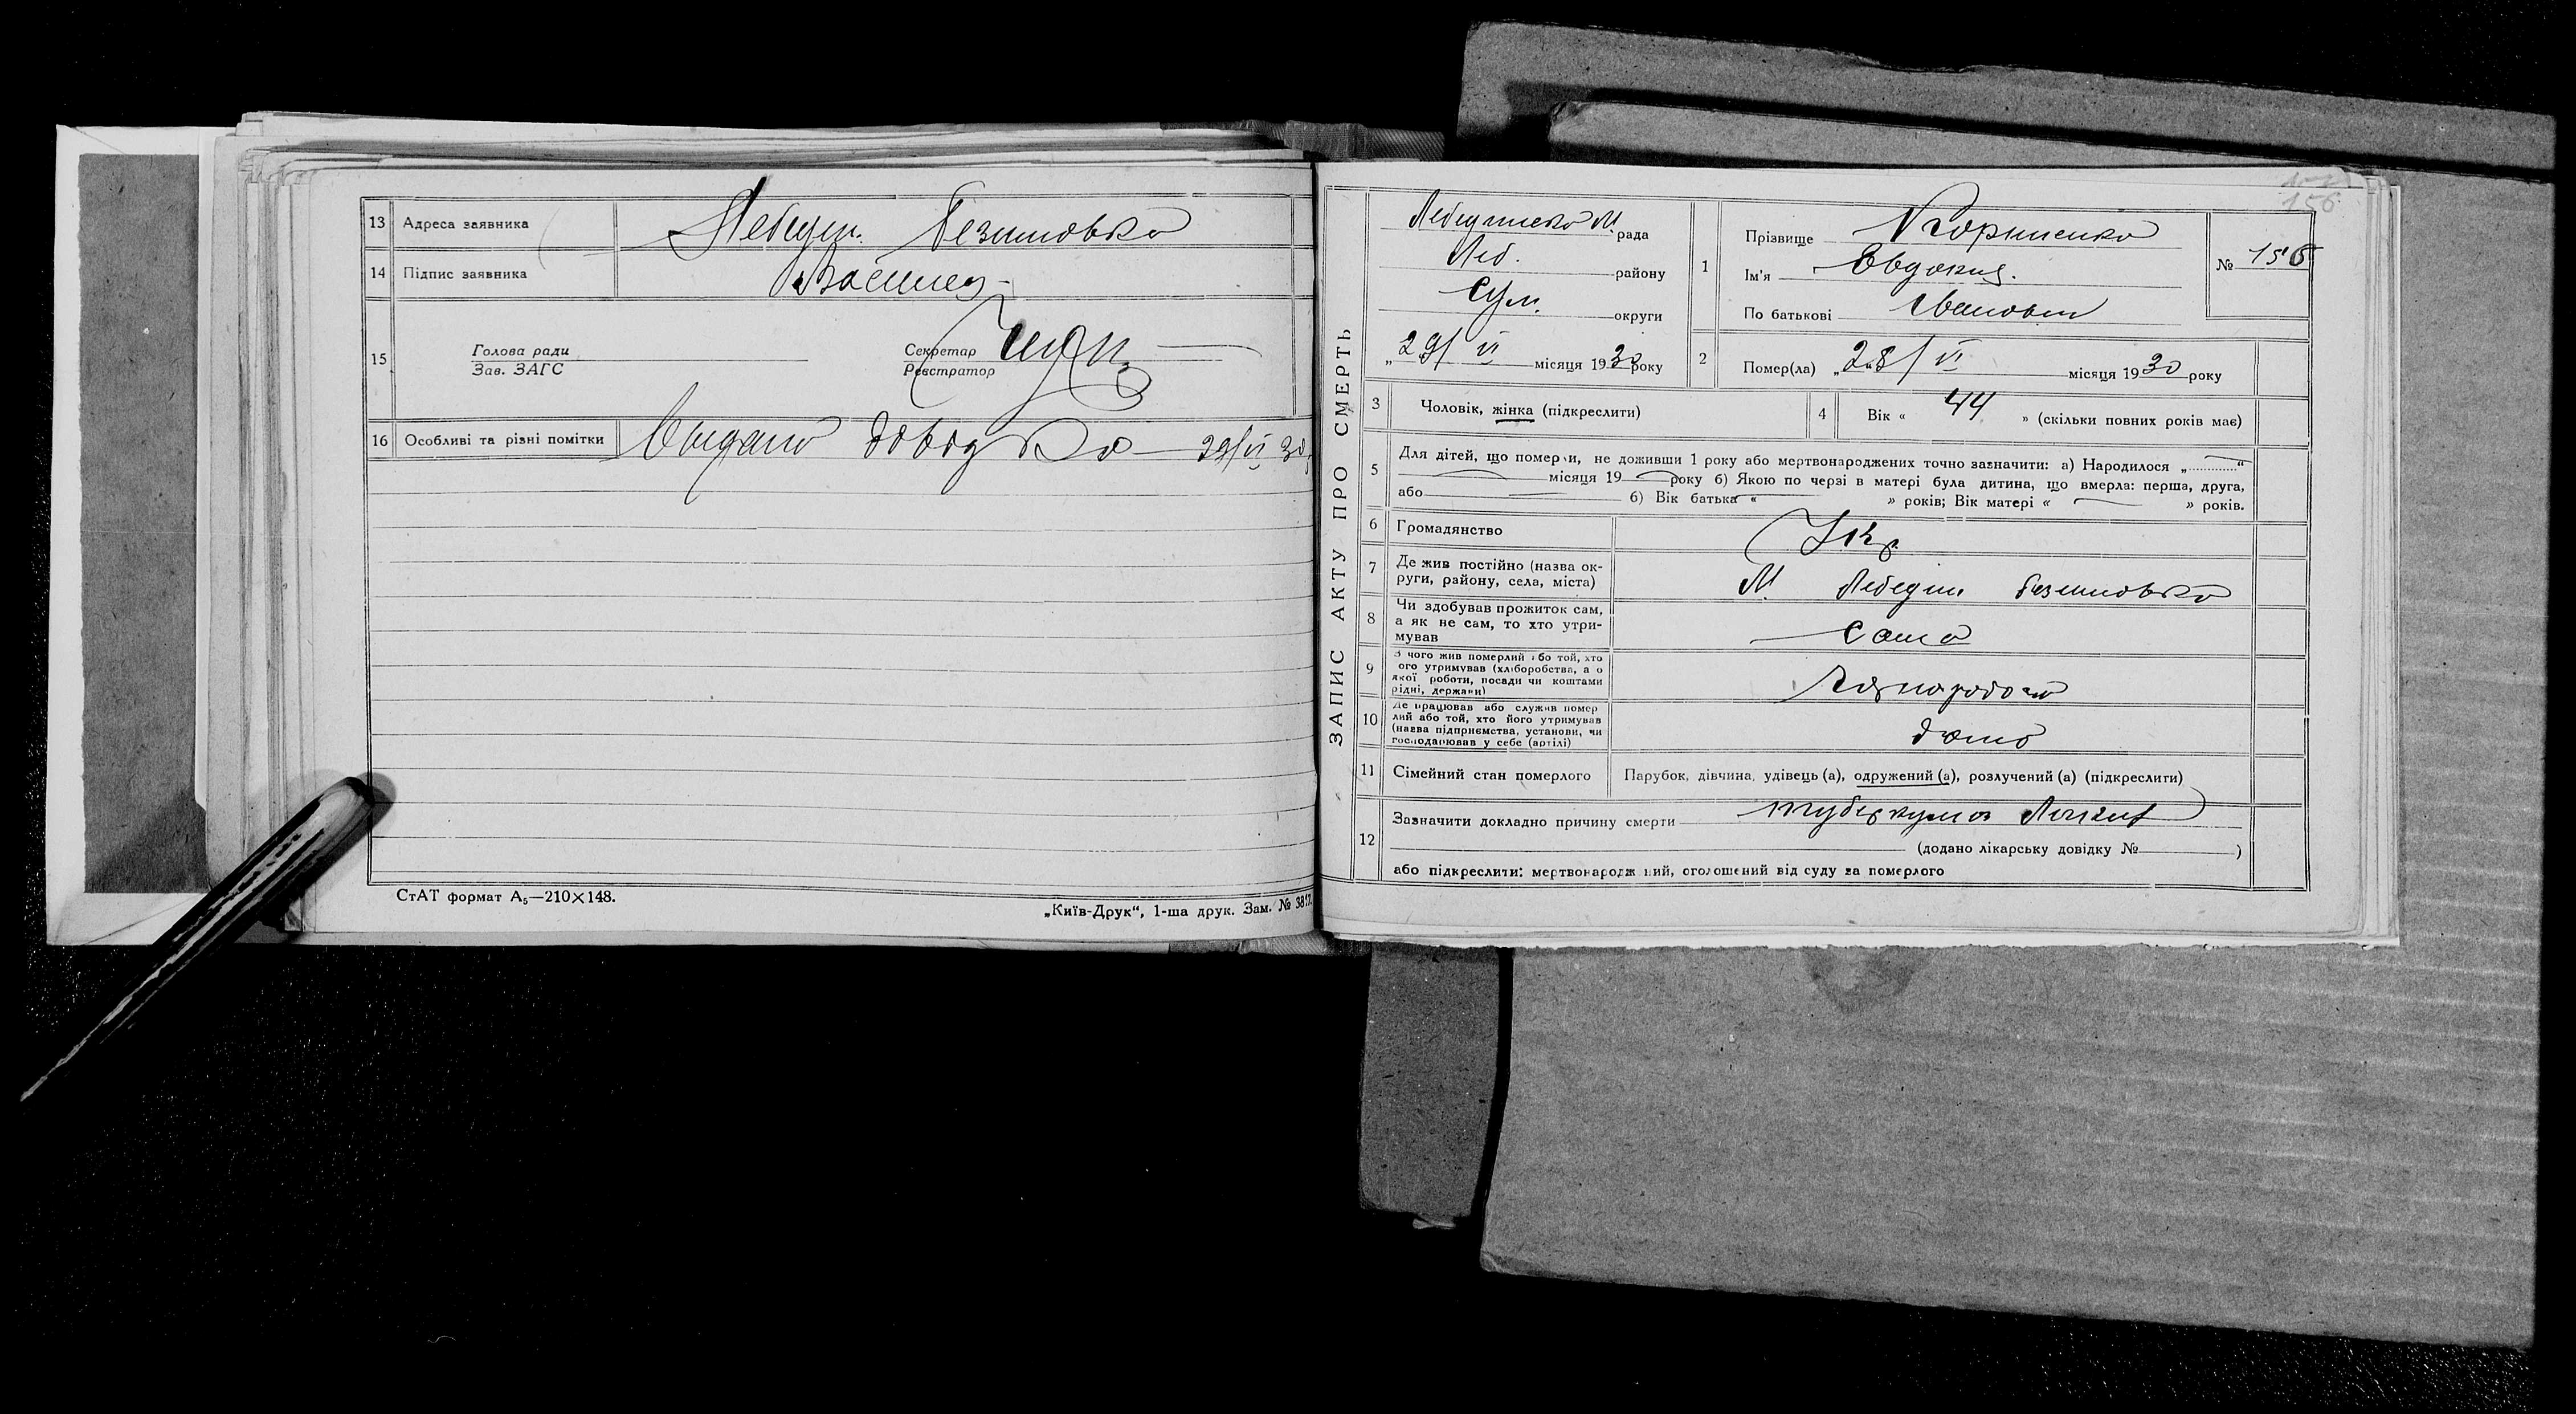 13 Адреса заявника Лебедин. Безимовка
14 Підпис заявника
15 Голова ради
Зав. ЗАГС
Секретар
Реєстратор
16 Особливі та різні помітки Видано довідка 29/VI 30
СтАТ формат А₅—210×148.
„Київ-Друк“, 1-ша друк. Зам. № 3817.
ЗАПИС АКТУ ПРО СМЕРТЬ
156
Лебединська М. рада
Леб. району
Сум. округи
„29/ VI місяця 1930 року
1 Прізвище Корниенко
Ім'я Евдокия.
По батькові Ивановн
№ 156
2 Помер(ла) „28/ VI місяця 1930 року
3 Чоловік, жінка (підкреслити)
4 Вік « 44 » (скільки повних років має)
5 Для дітей, що померли, не доживши 1 року або мертвонароджених точно зазначити: а) Народилося „............“
місяця 19 року б) Якою по черзі в матері була дитина, що вмерла: перша, друга,
або б) Вік батька « » років; Вік матері « » років.
6 Громадянство Укр
7 Де жив постійно (назва округи, району, села, міста) М. Лебедин Безимовка
8 Чи здобував прожиток сам,
а як не сам, то хто утримував
сама
9 З чого жив померлий або той, хто
його утримував (хліборобства, а о
якої роботи, посади чи коштами
рідні, держави)
10 Де працював або служив помер
лий або той, хто його утримував
(назва підприємства, установи, чи
господарював у себе (артілі)
дома
11 Сімейний стан померлого Парубок, дівчина, удівець (а), одружений (а), розлучений (а) (підкреслити)
12 Зазначити докладно причину смерти туберкульоз Легких
(додано лікарську довідку № )
або підкреслити: мертвонароджений, оголошений від суду за померлого